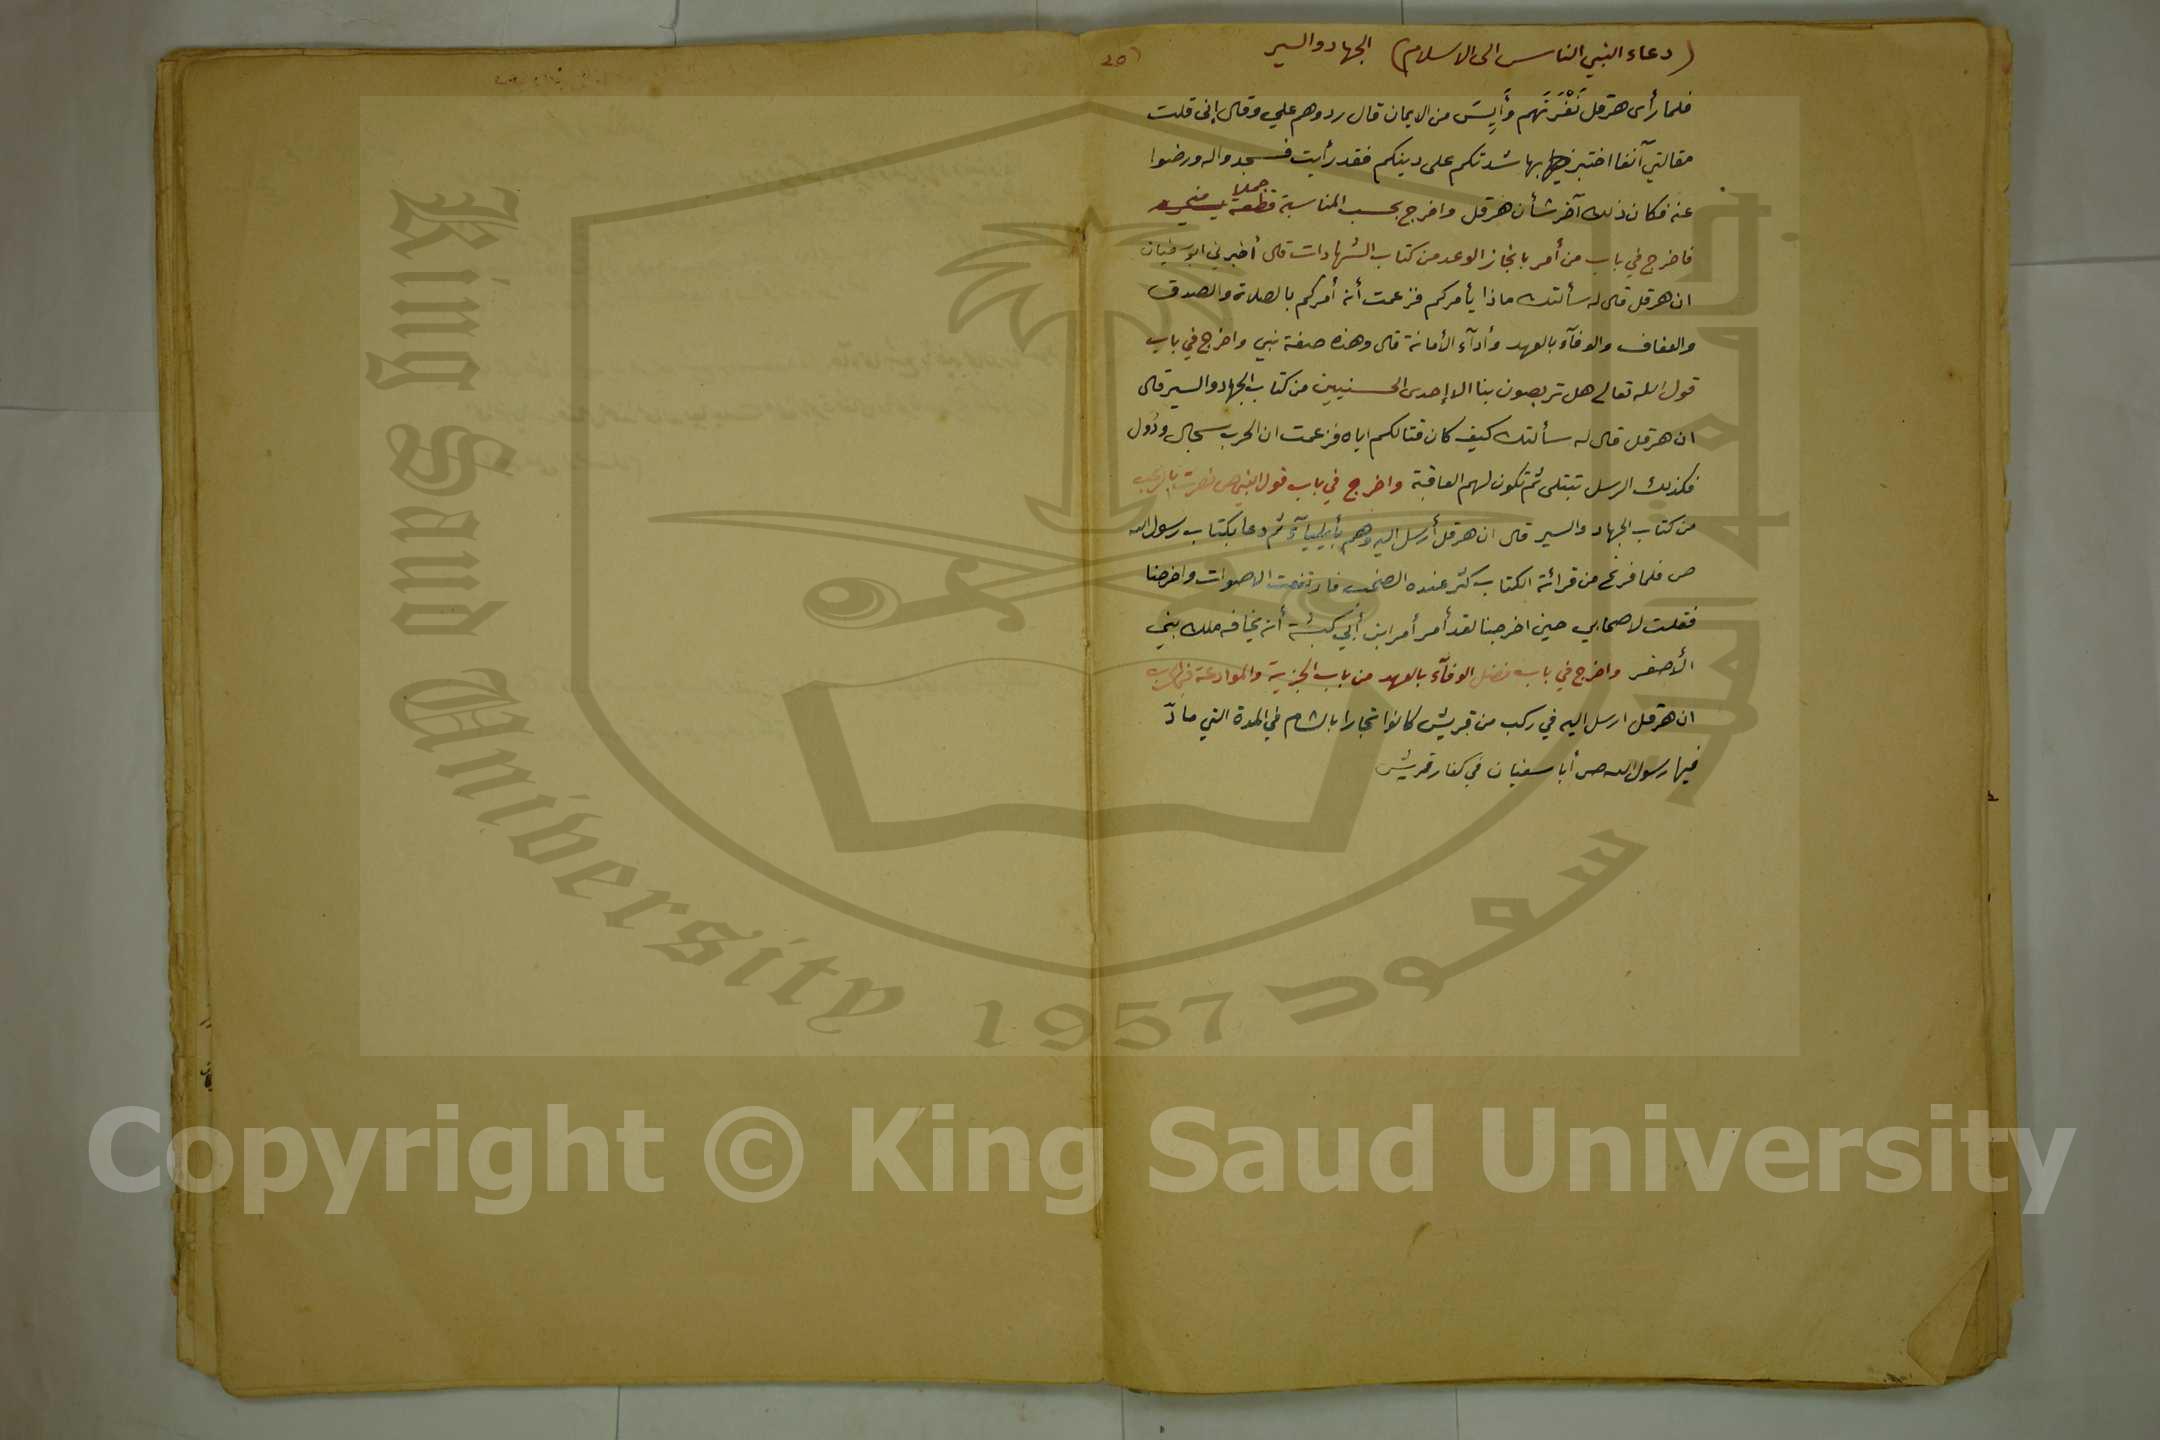 (دعاء النبي الناس الى الاسلام) الجهاد والسير
فلما رأى هرقل نَفْرَتَهم وَأَيِسَ من الايمان قال ردوهم علي وقال إنى قلت
مقالتي آنفا اختبر بها شدتكم على دينكم فقد رأيت فسجدوا له ورضوا
عنه فكان ذلك آخر شأن هرقل واخرج بحسب المناسبة قطعة
جملا
فاخرج في باب من أمر بانجاز الوعد من كتاب الشهادات قال أخبرني ابو سفيان
ان هرقل قال له سألتك ماذا يأمركم فزعمت أنه أمركم بالصلاة والصدق
والعفاف والوفآء بالعهد وأدآء الأمانة قال وهذه صفة نبي واخرج في باب
قول الله تعالى هل تربصون بنا الا إحدى الحسنيين من كتاب الجهاد والسير قال
ان هرقل قال له سألتك كيف كان قتالكم اياه فزعمت ان الحرب سجال ودُول
فكذلك الرسل تبتلى ثم تكون لهم العاقبة واخرج في باب قول النبي ص نصرت بالرعب
من كتاب الجهاد والسير قال ان هرقل أرسل اليه وهم بأيليآء ثم دعا بكتاب رسول الله
ص فلما فرغ من قرائة الكتاب كثر عنده الصخب فارتفعت الاصوات واخرجنا
فقلت لاصحابي حين اخرجنا لقد أمر أمر ابن أبي كبشة أنه يخافه ملك بني
الأصفر واخرج في باب فضل الوفآء بالعهد من باب الجزية والموادعة في الحرب
ان هرقل ارسل اليه في ركب من قريش كانوا تجارا بالشام في المدة التي مادّ
فيها رسول الله ص أبا سفيان في كفار قريش
King Saud University
1957
جامعة الملك سعود
Copyright © King Saud University